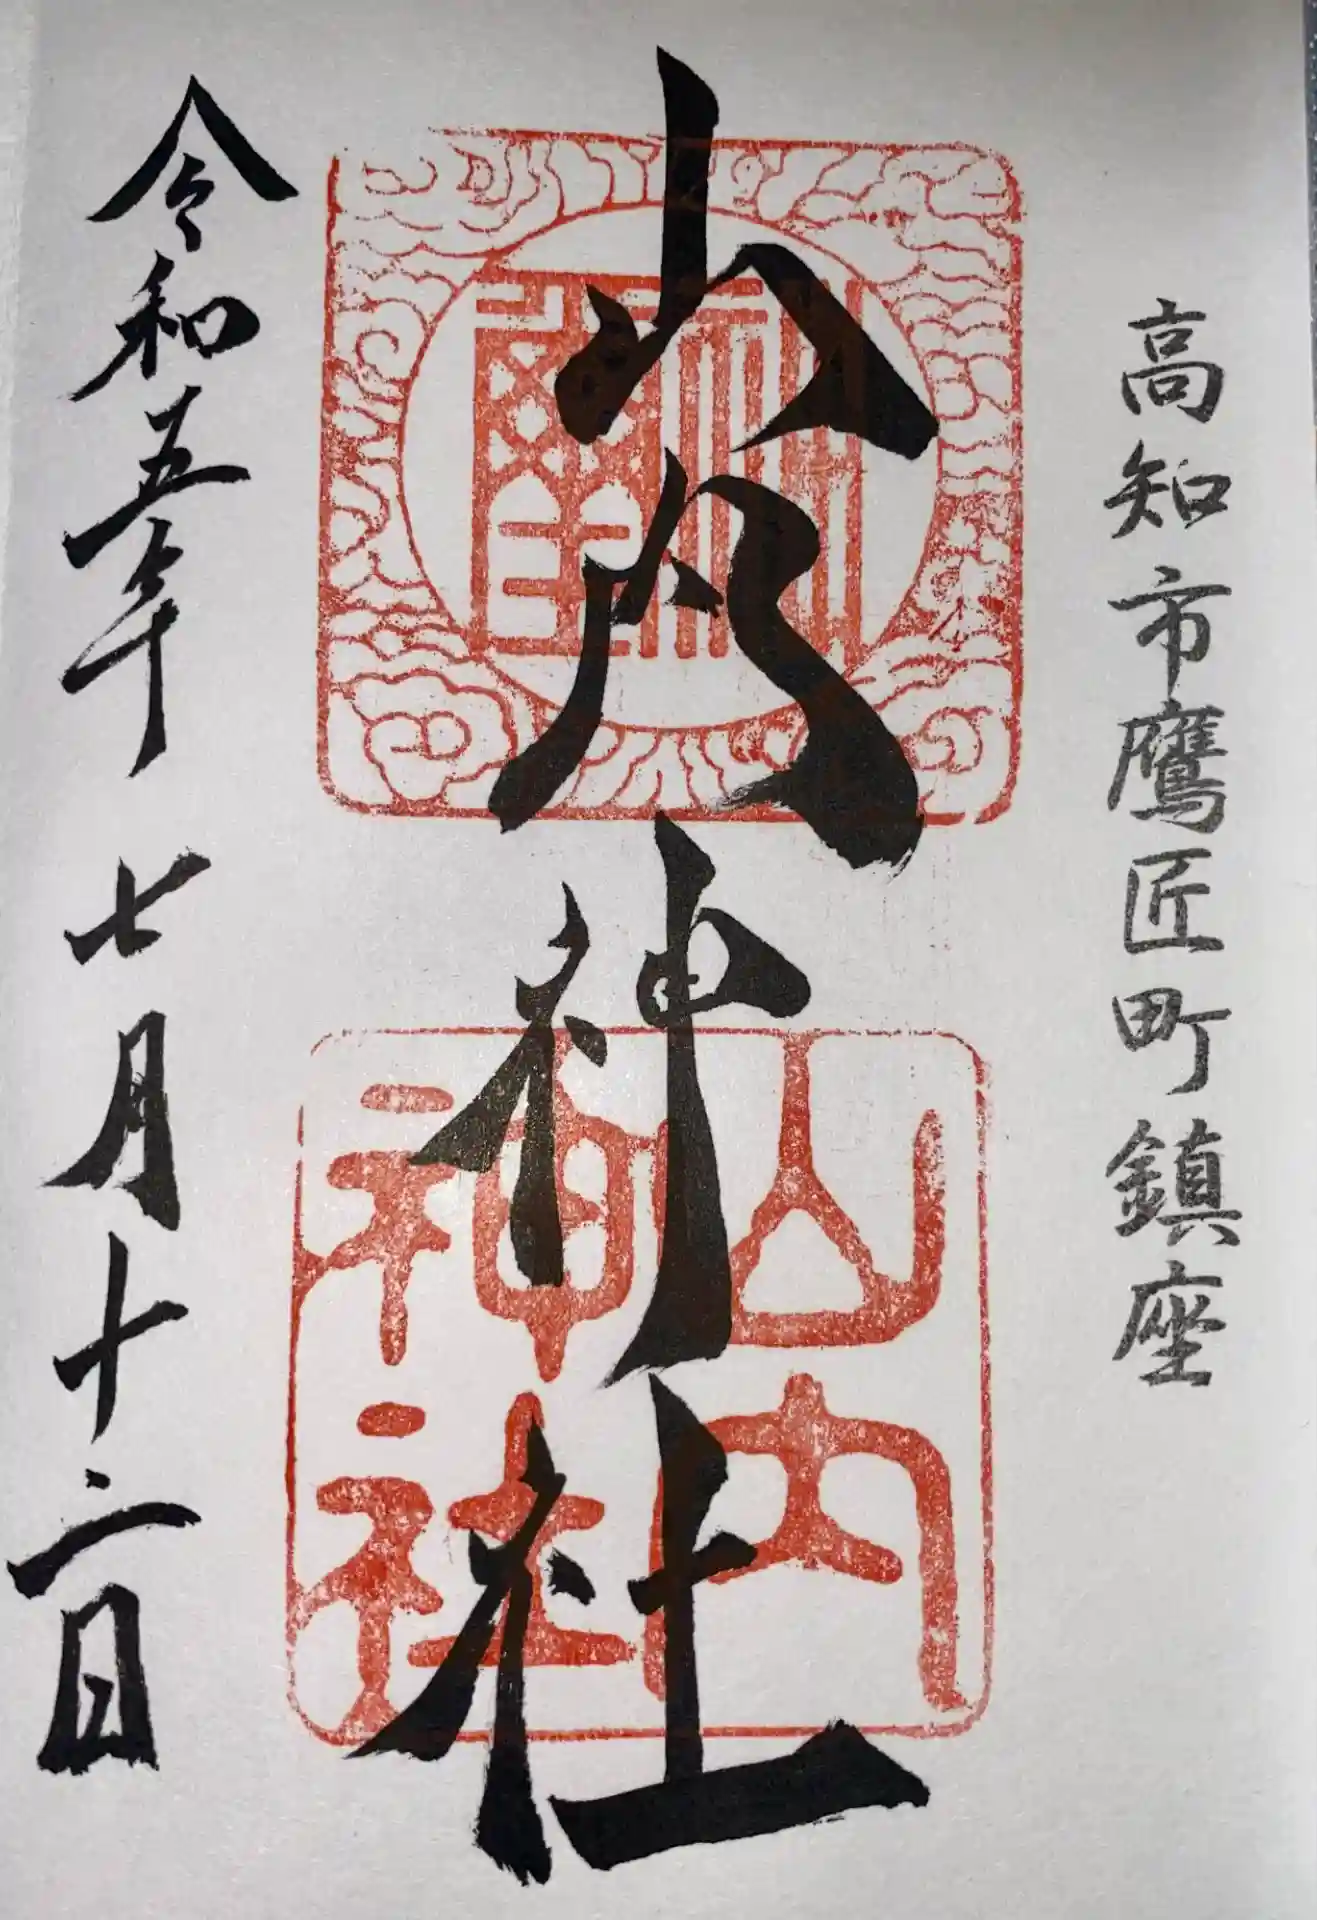 高知市鷹匠町鎮座
山内神社
山内
神社
令和五年 七月十二日